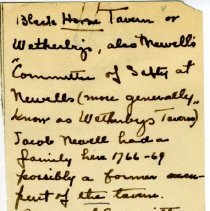 Black Horse Tavern or
Wetherby's, also Newell's
"Committee of Safty at
Newells (more generally
know as Wetherbys Tavern)
Jacob Newell had a
family here 1766-69
possibly a former
part of the tavern.